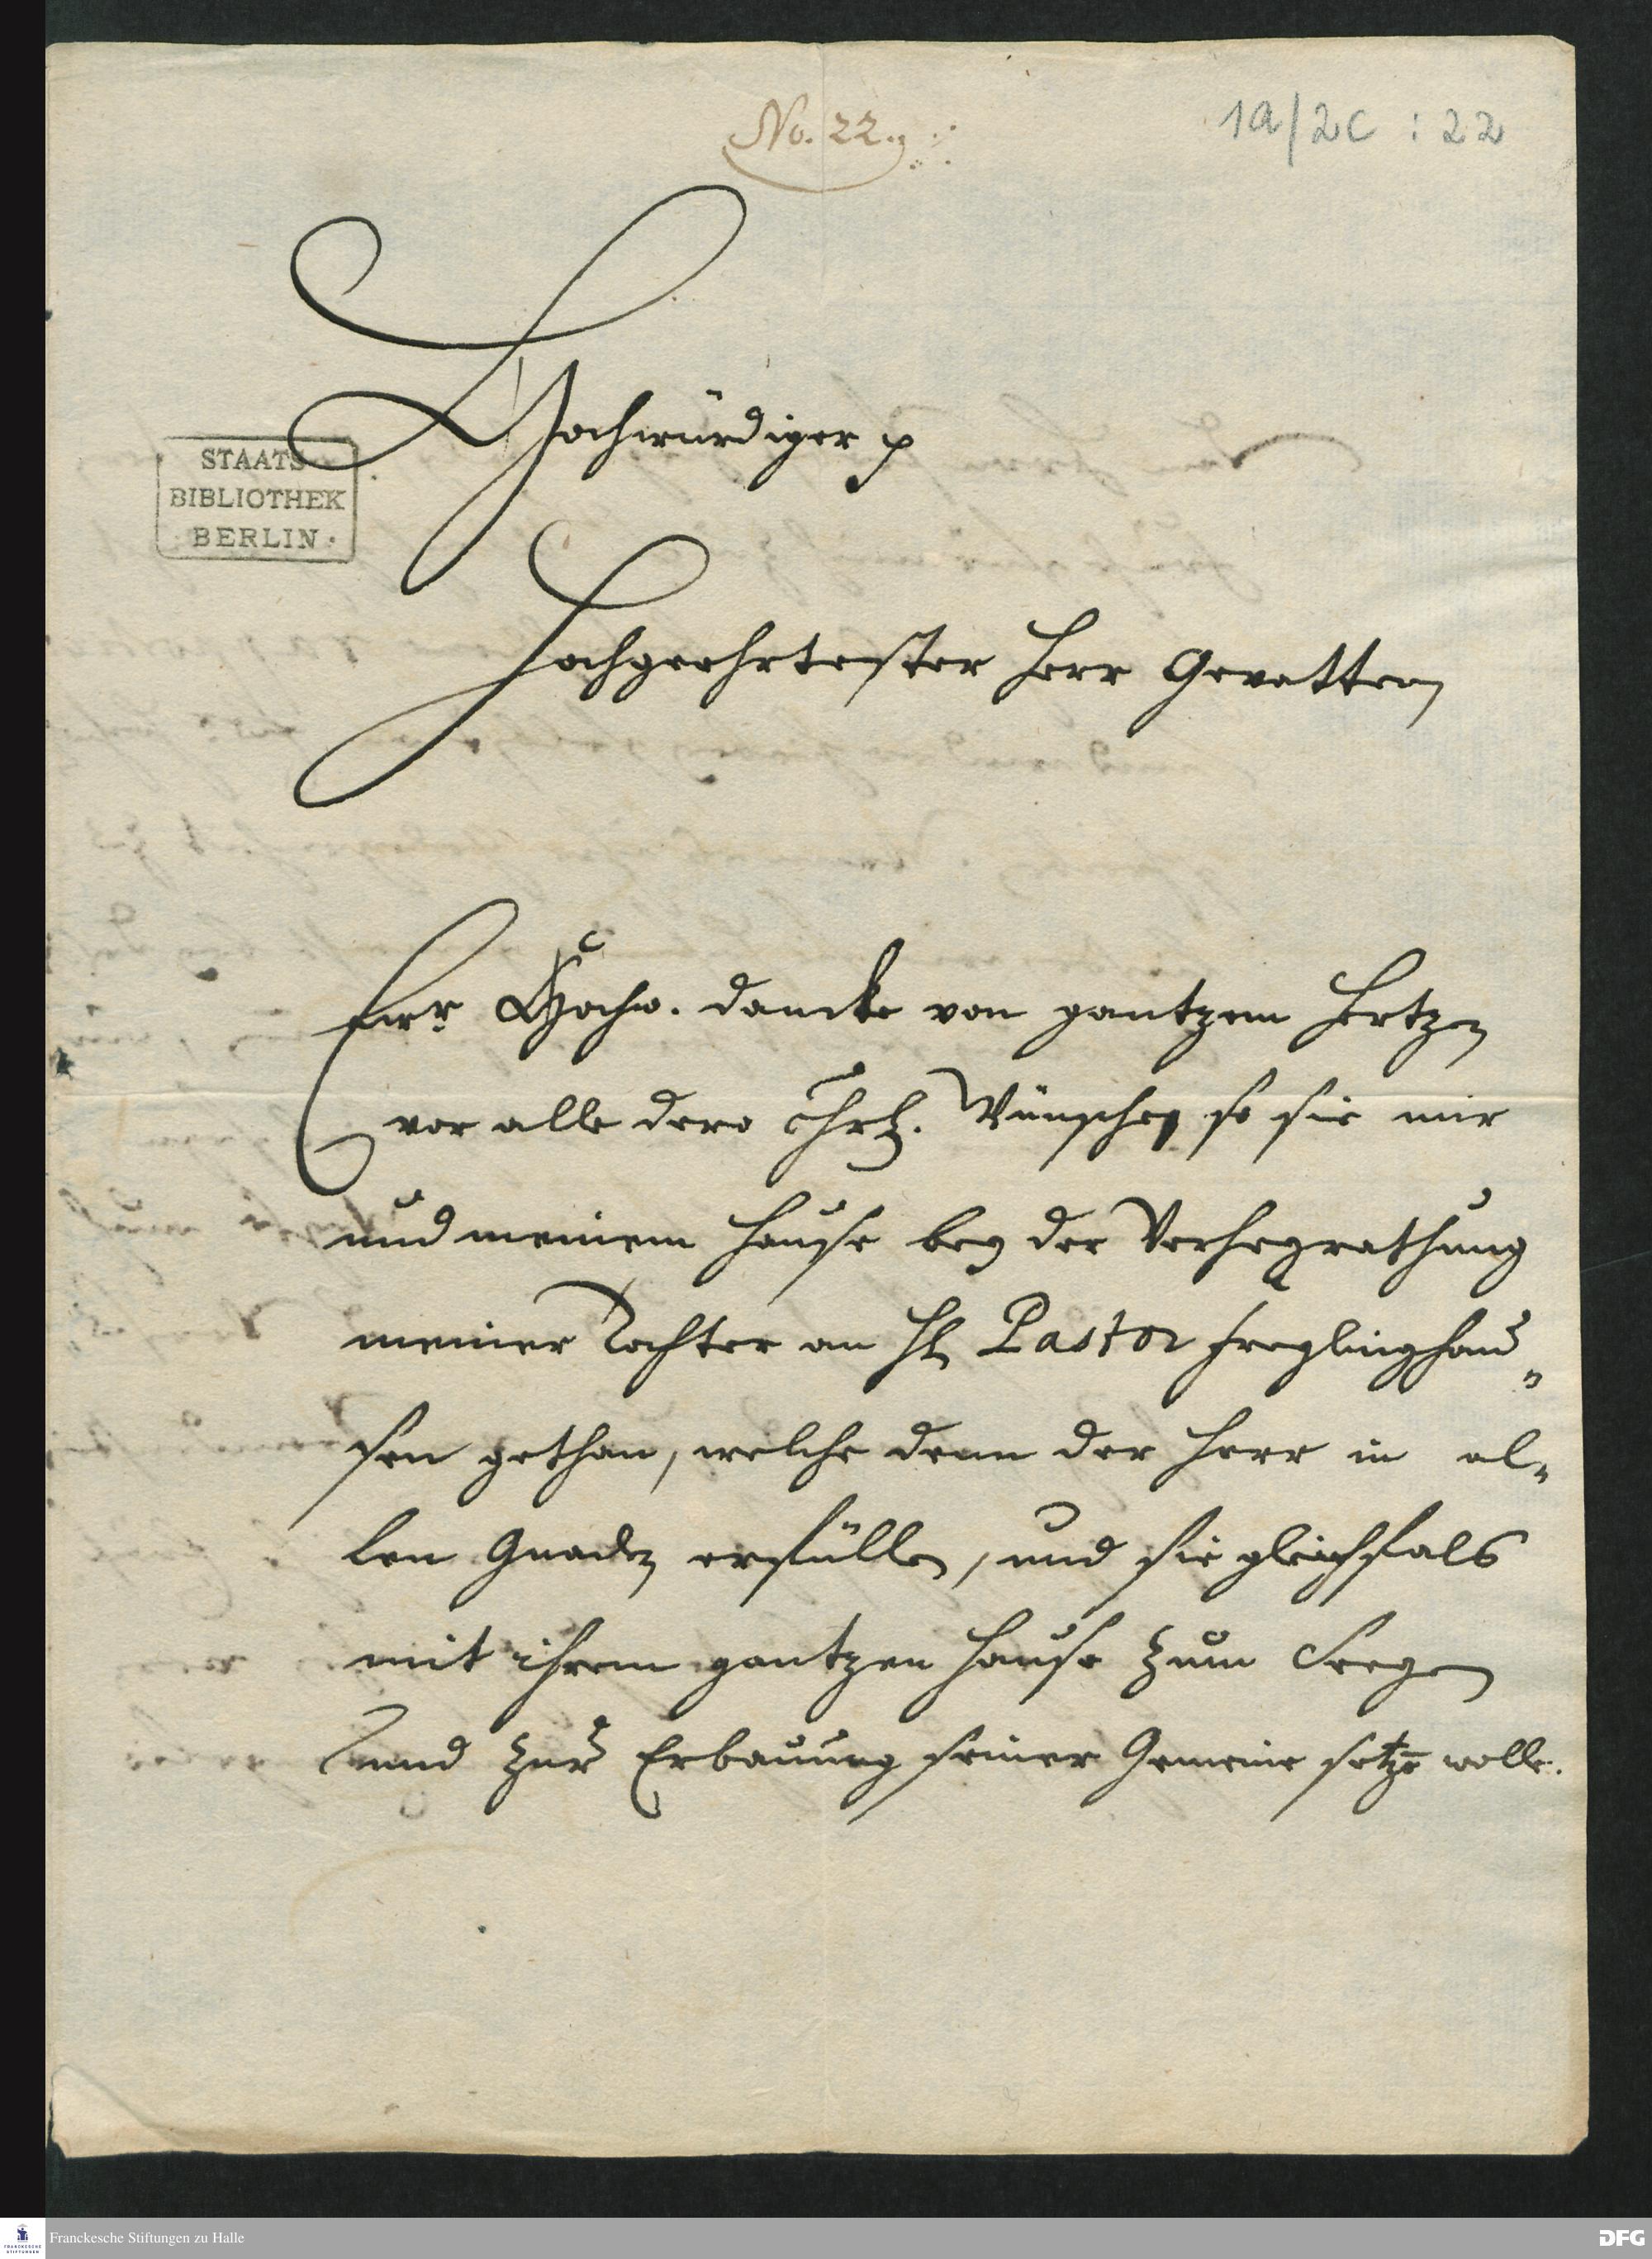 No. 22.
1a/2c : 22
Hochwürdiger p
STAATS
BIBLIOTHEK
BERLIN
Hochgeehrtester Herr Gevatter
Ewr Hochw. dancke von gantzem Hertzen
vor alle dero Chrl. Wünsche so sie mir
und meinem Hause bey der Verheyrathung
meiner Tochter an H. Pastor Freylinghau-
sen gethan, welche denn der Herr in al-
len Gnaden erfüllen, und sie gleichfals
mit ihrem gantzen Hause zum Seegen
und zur Erbauung seiner Gemeine setzē wolle.
Franckesche Stiftungen zu Halle
DFG